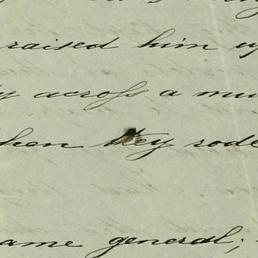 raised him up
y across a mu
hen they rode
ame general;